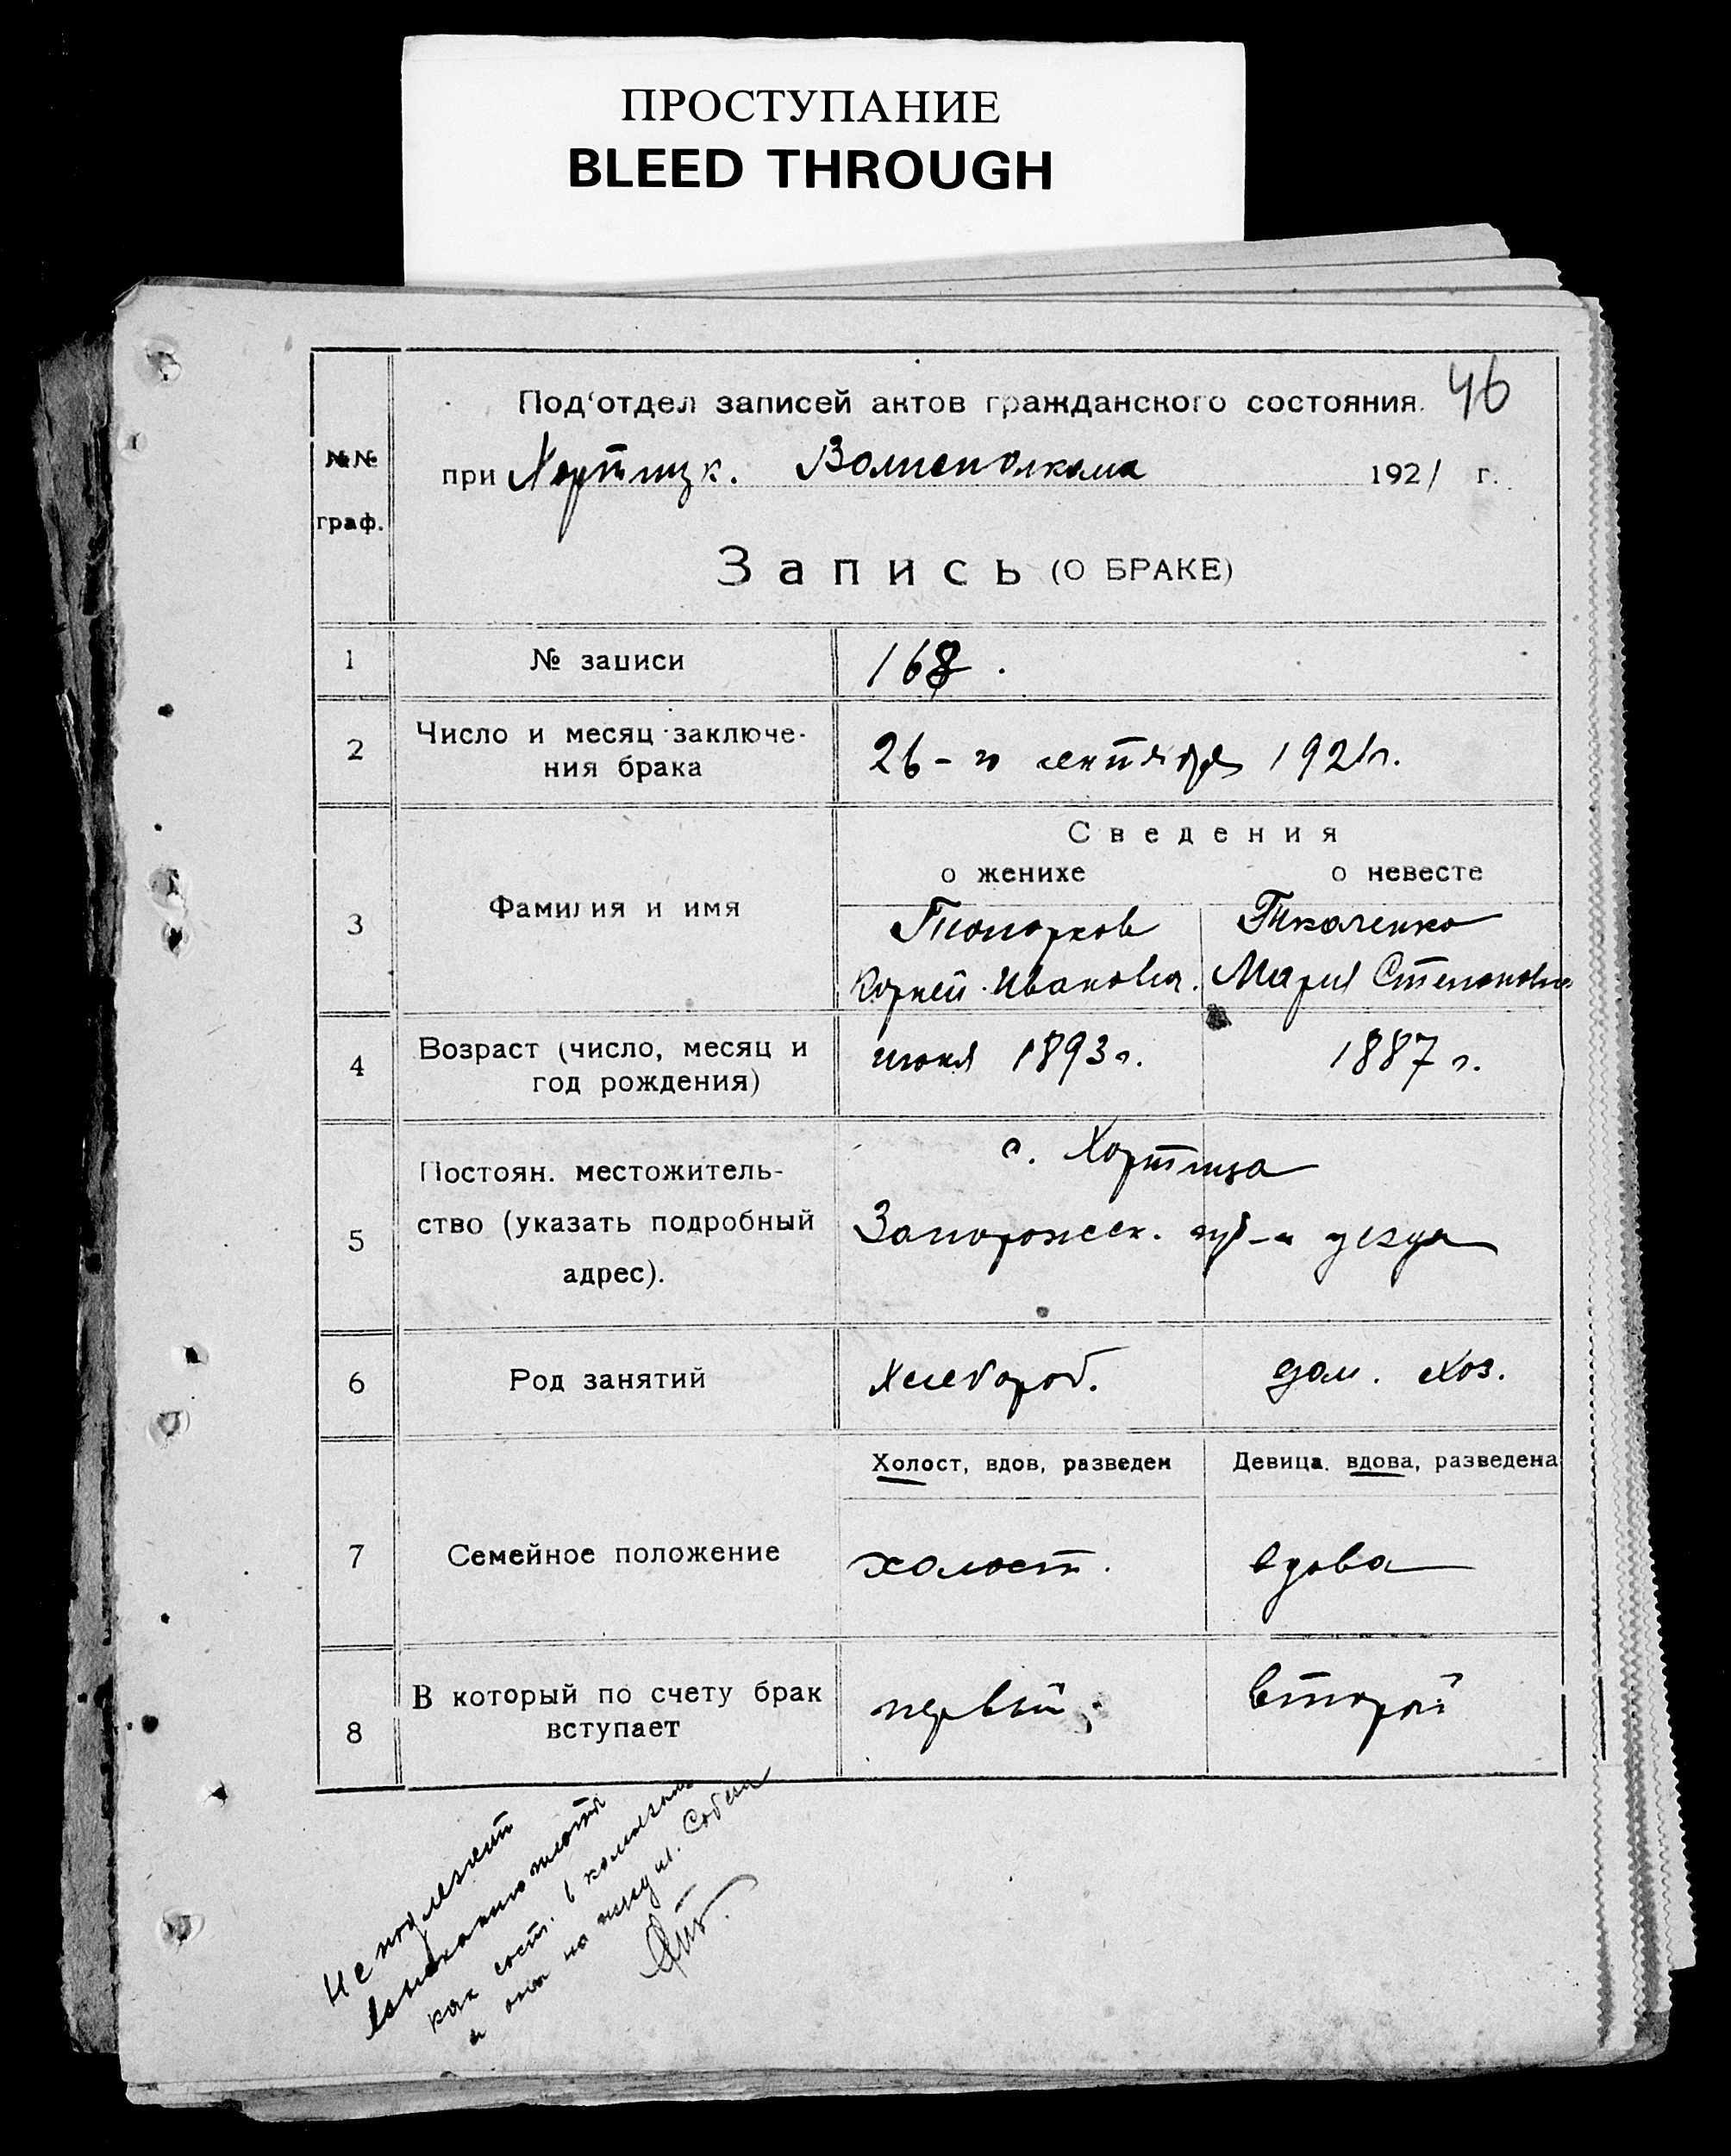 ПРОСТУПАНИЕ
BLEED THROUGH
46
Под'отдел записей актов гражданского состояния.
№№ граф.
при Хортицк. Волисполкома 1921 г.
Запись (О БРАКЕ)
1 № записи 168.
2 Число и месяц заключе-
ния брака 26-го сентября 1921 г.
Сведения
о женихе о невесте
3 Фамилия и имя
Топорков Ткаченко
Корней Иванович. Мария Степановна
4 Возраст (число, месяц и
год рождения) июня 1893 г. 1887 г.
с. Хортица
5 Постоян. местожитель-
ство (указать подробный
адрес).
Запорожск. губ-и уезда
6 Род занятий Хлебороб. дом. хоз.
Холост, вдов, разведен Девица, вдова, разведена
7 Семейное положение холост. вдова
8 В который по счету брак
вступает первый; второй
Не подлежит
как сост. в
и